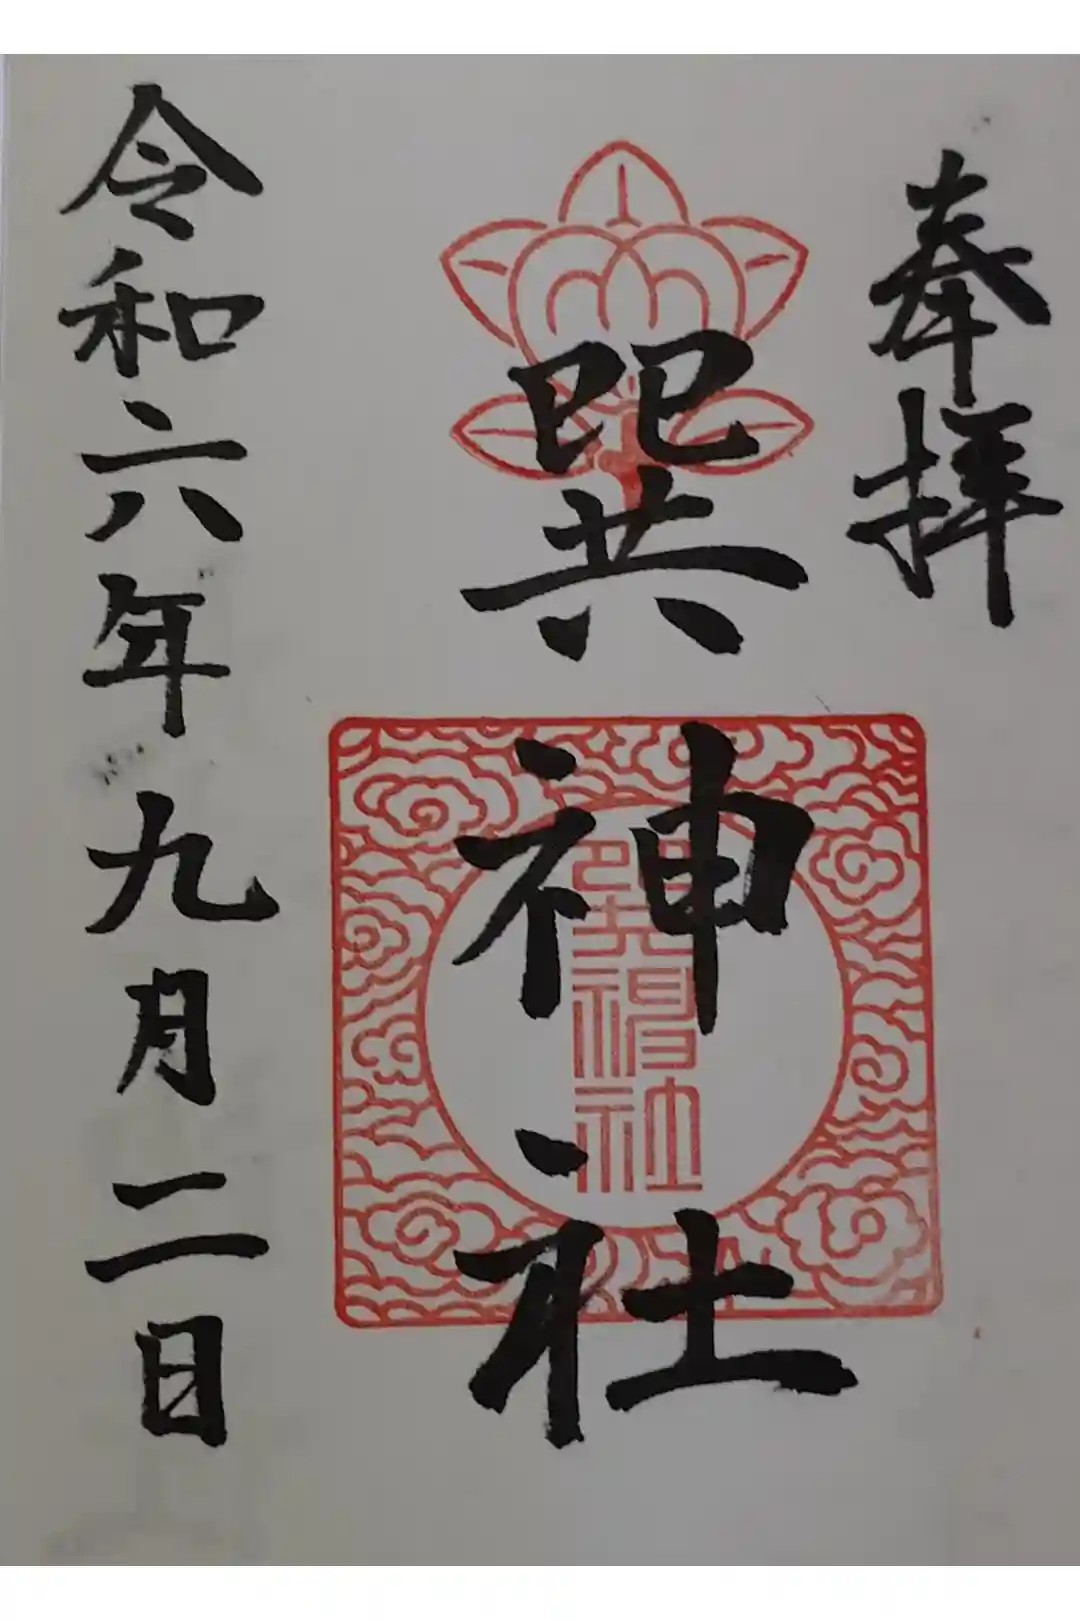 奉拝
巽神社
巽神社
令和六年九月二日